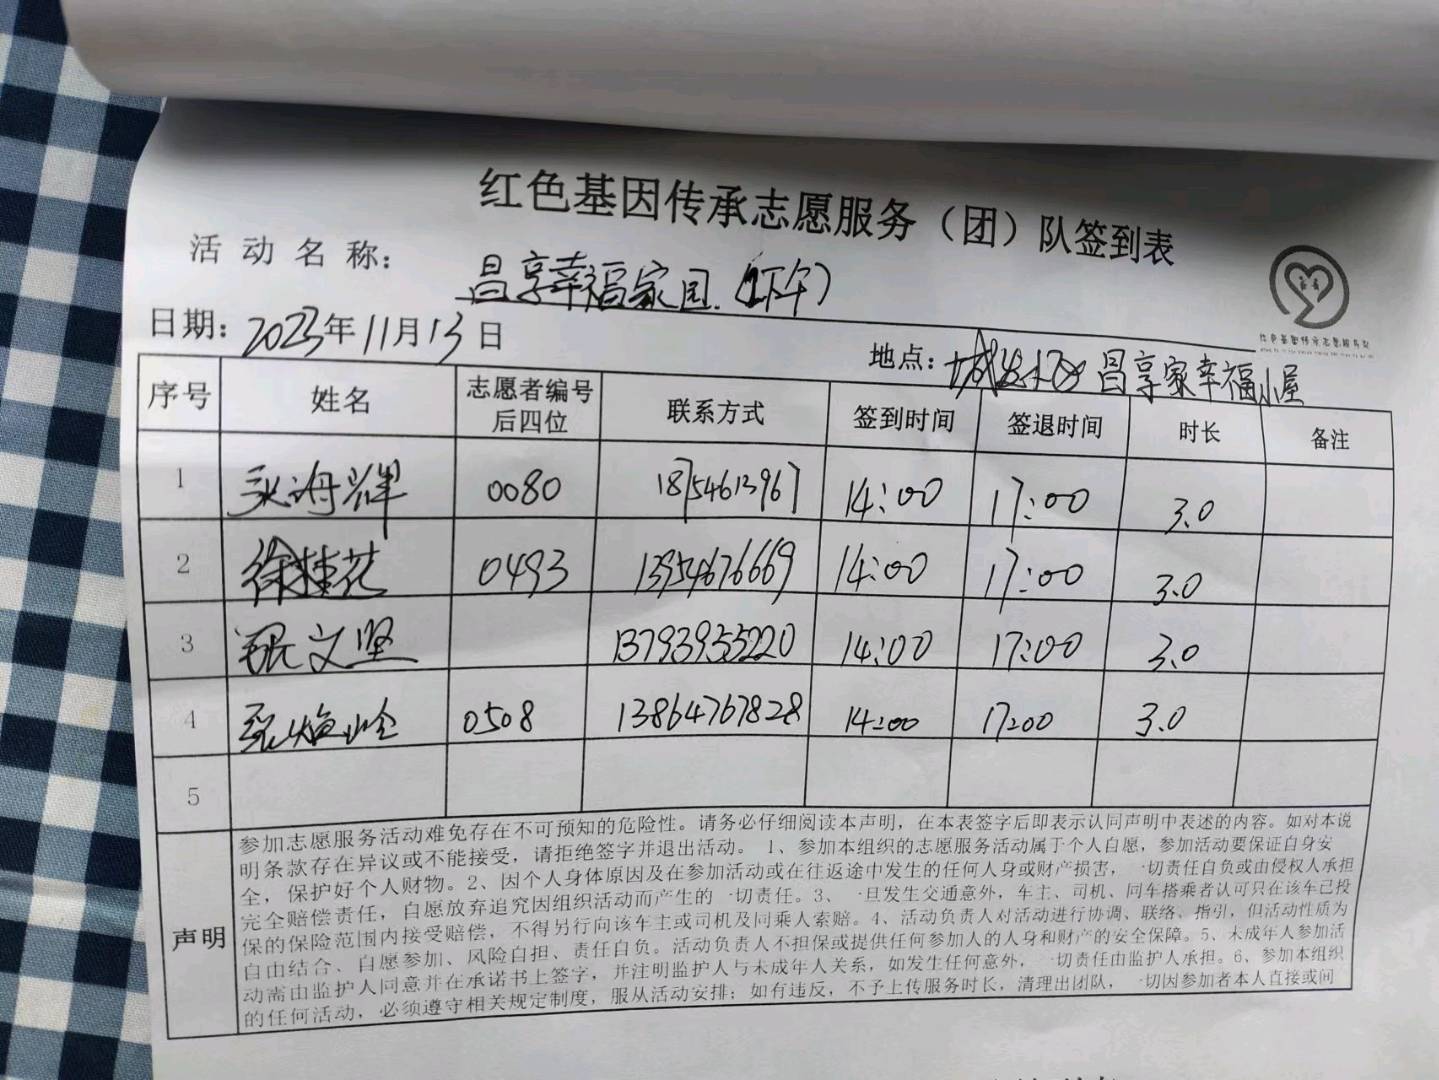 红色基因传承志愿服务（团）队签到表
活动名称： 昌享幸福家园（下午）
日期：2023年11月13日
地点： 昌享家幸福小屋
红色基因传承志愿服务队
序号 姓名 志愿者编号后四位 联系方式 签到时间 签退时间 时长 备注
1 海辉 0080 18754613967 14:00 17:00 3.0
2 徐桂花 0493 13954676669 14:00 17:00 3.0
3 文坚 13793955220 14:00 17:00 3.0
4 0508 13864767828 14:00 17:00 3.0
5
声明
参加志愿服务活动难免存在不可预知的危险性。请务必仔细阅读本声明，在本表签字后即表示认同声明中表述的内容。如对本说
明条款存在异议或不能接受，请拒绝签字并退出活动。 1、参加本组织的志愿服务活动属于个人自愿，参加活动要保证自身安
全，保护好个人财物。2、因个人身体原因及在参加活动或在往返途中发生的任何人身或财产损害，一切责任自负或由侵权人承担
完全赔偿责任，自愿放弃追究因组织活动而产生的一切责任。3、一旦发生交通意外，车主、司机、同车搭乘者认可只在该车已投
保的保险范围内接受赔偿，不得另行向该车主或司机及同乘人索赔。4、活动负责人对活动进行协调、联络、指引，但活动性质为
自由结合、自愿参加、风险自担、责任自负。活动负责人不担保或提供任何参加人的人身和财产的安全保障。5、未成年人参加活
动需由监护人同意并在承诺书上签字，并注明监护人与未成年人关系，如发生任何意外，一切责任由监护人承担。6、参加本组织
的任何活动，必须遵守相关规定制度，服从活动安排；如有违反，不予上传服务时长，清理出团队，一切因参加者本人直接或间